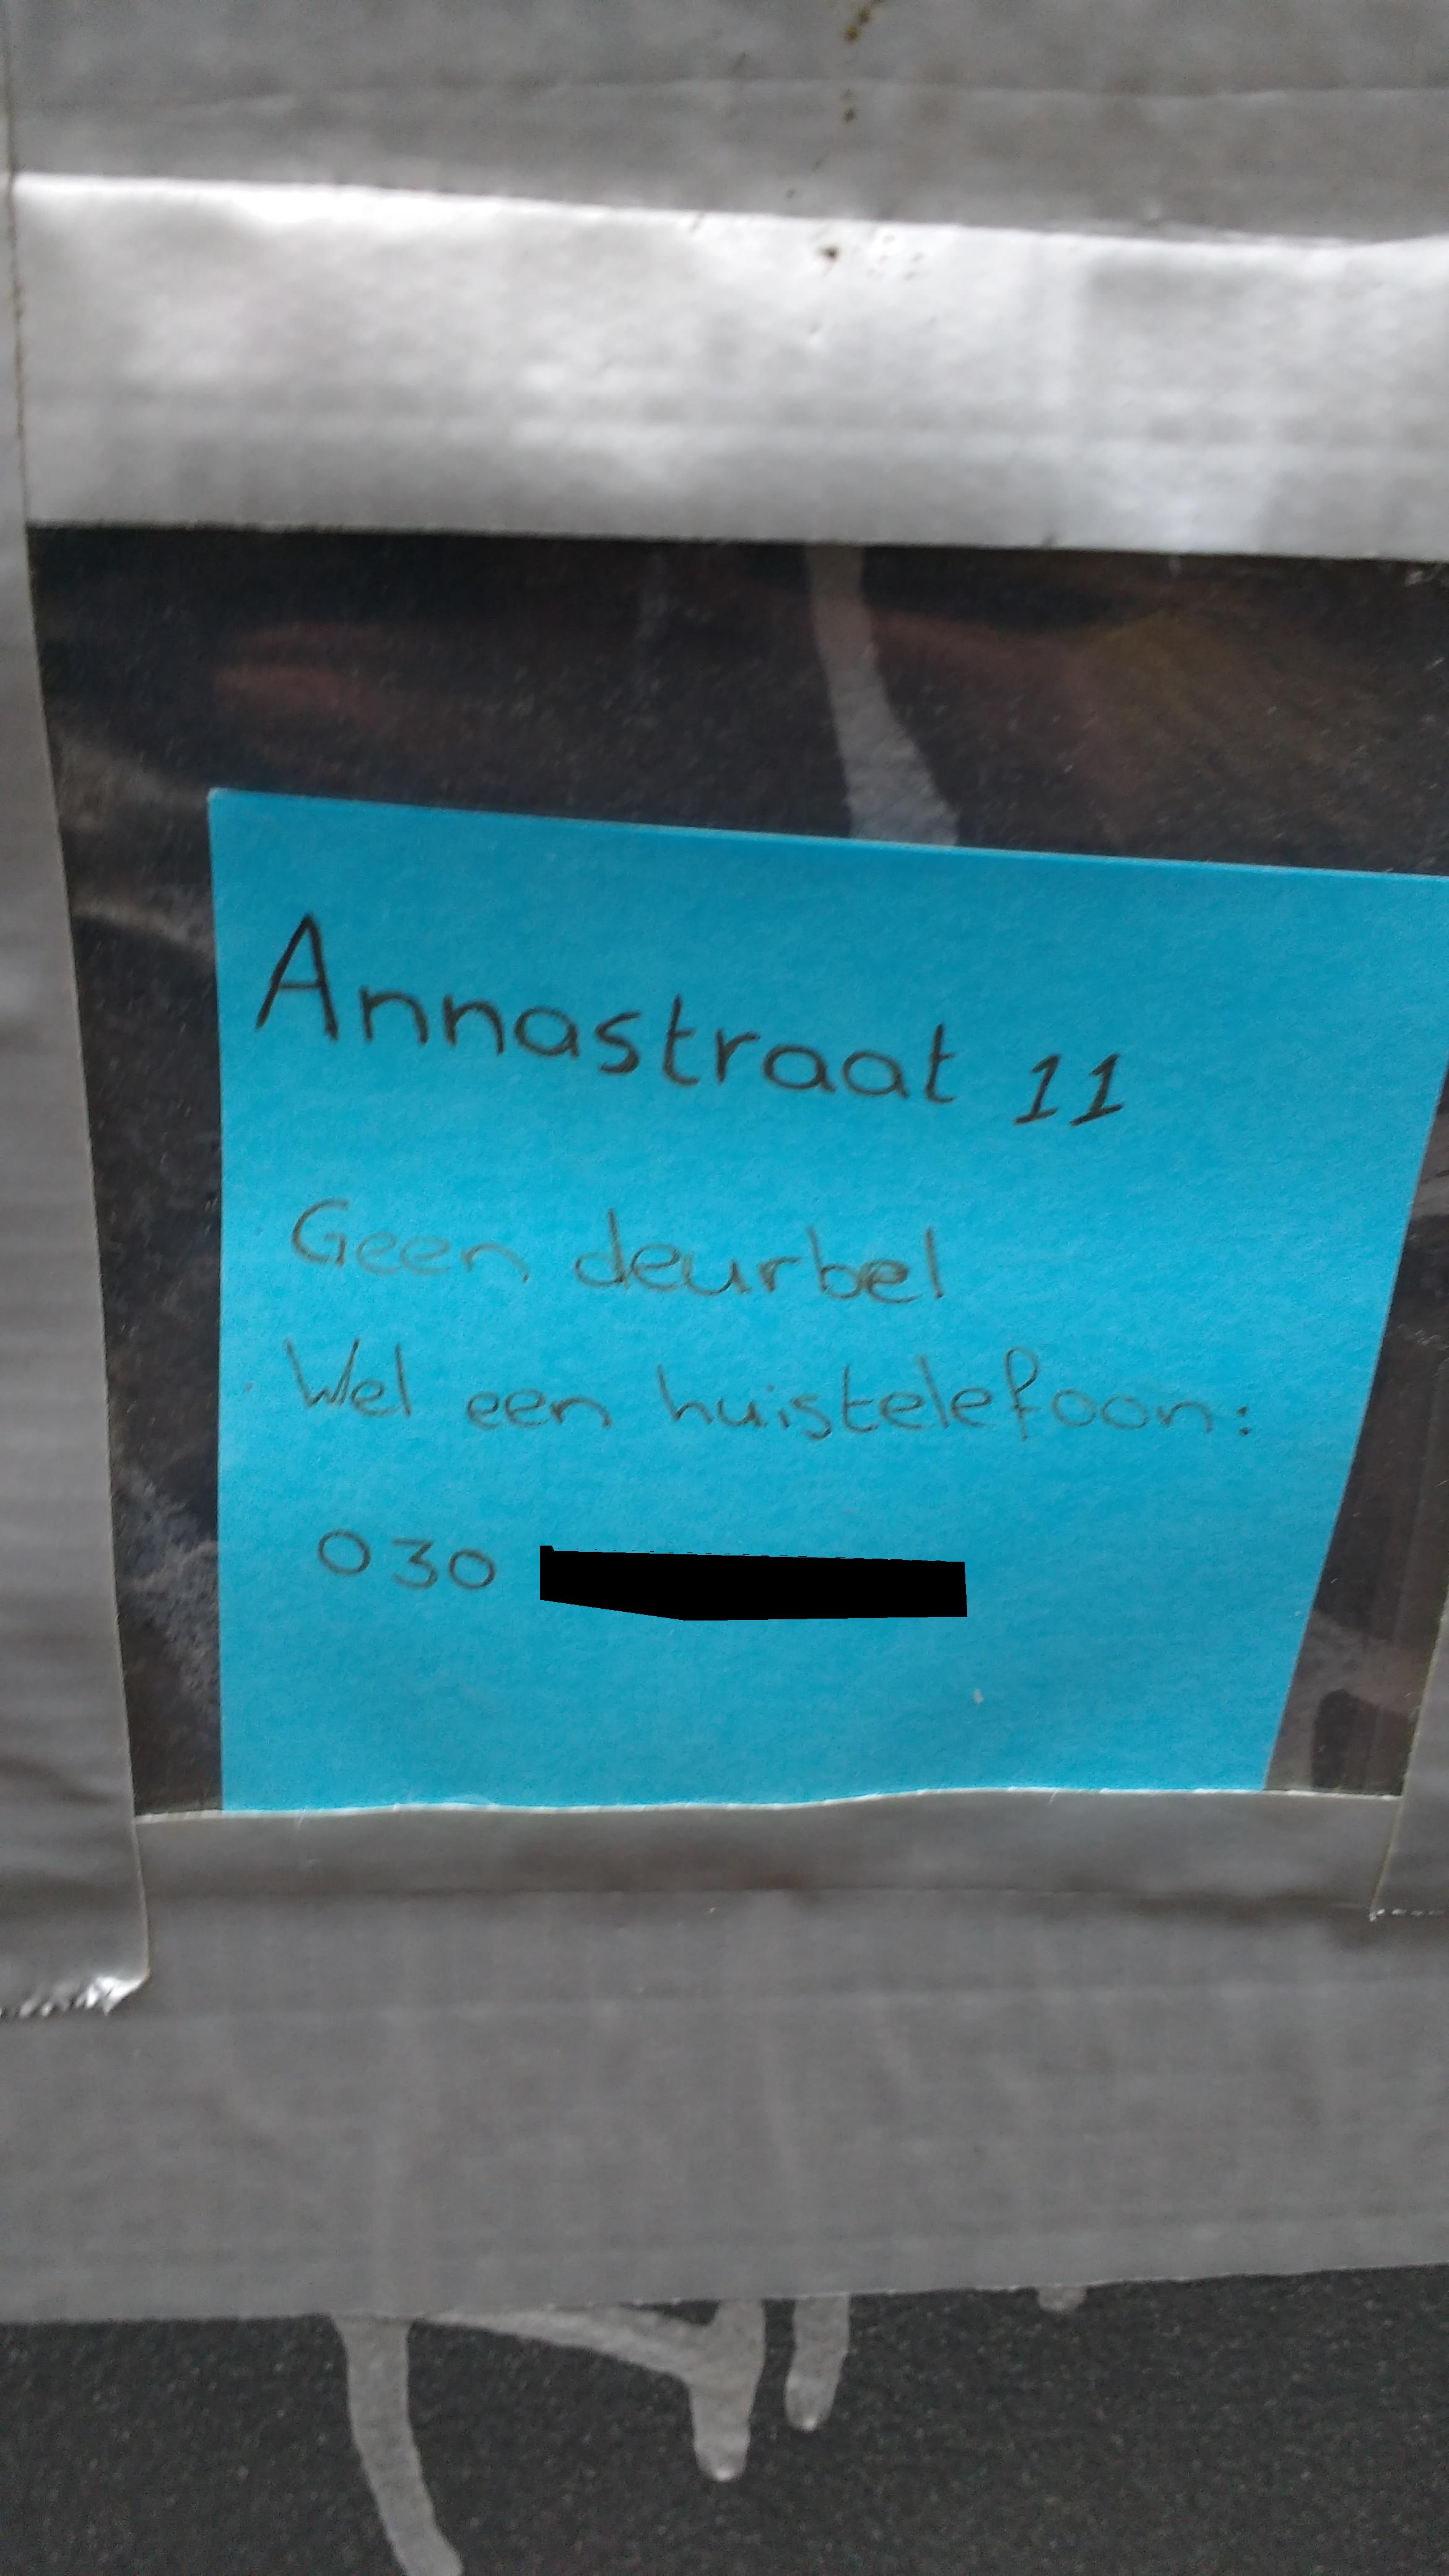 Annastraat 11
Geen deurbel
Wel een huistelefoon:
030